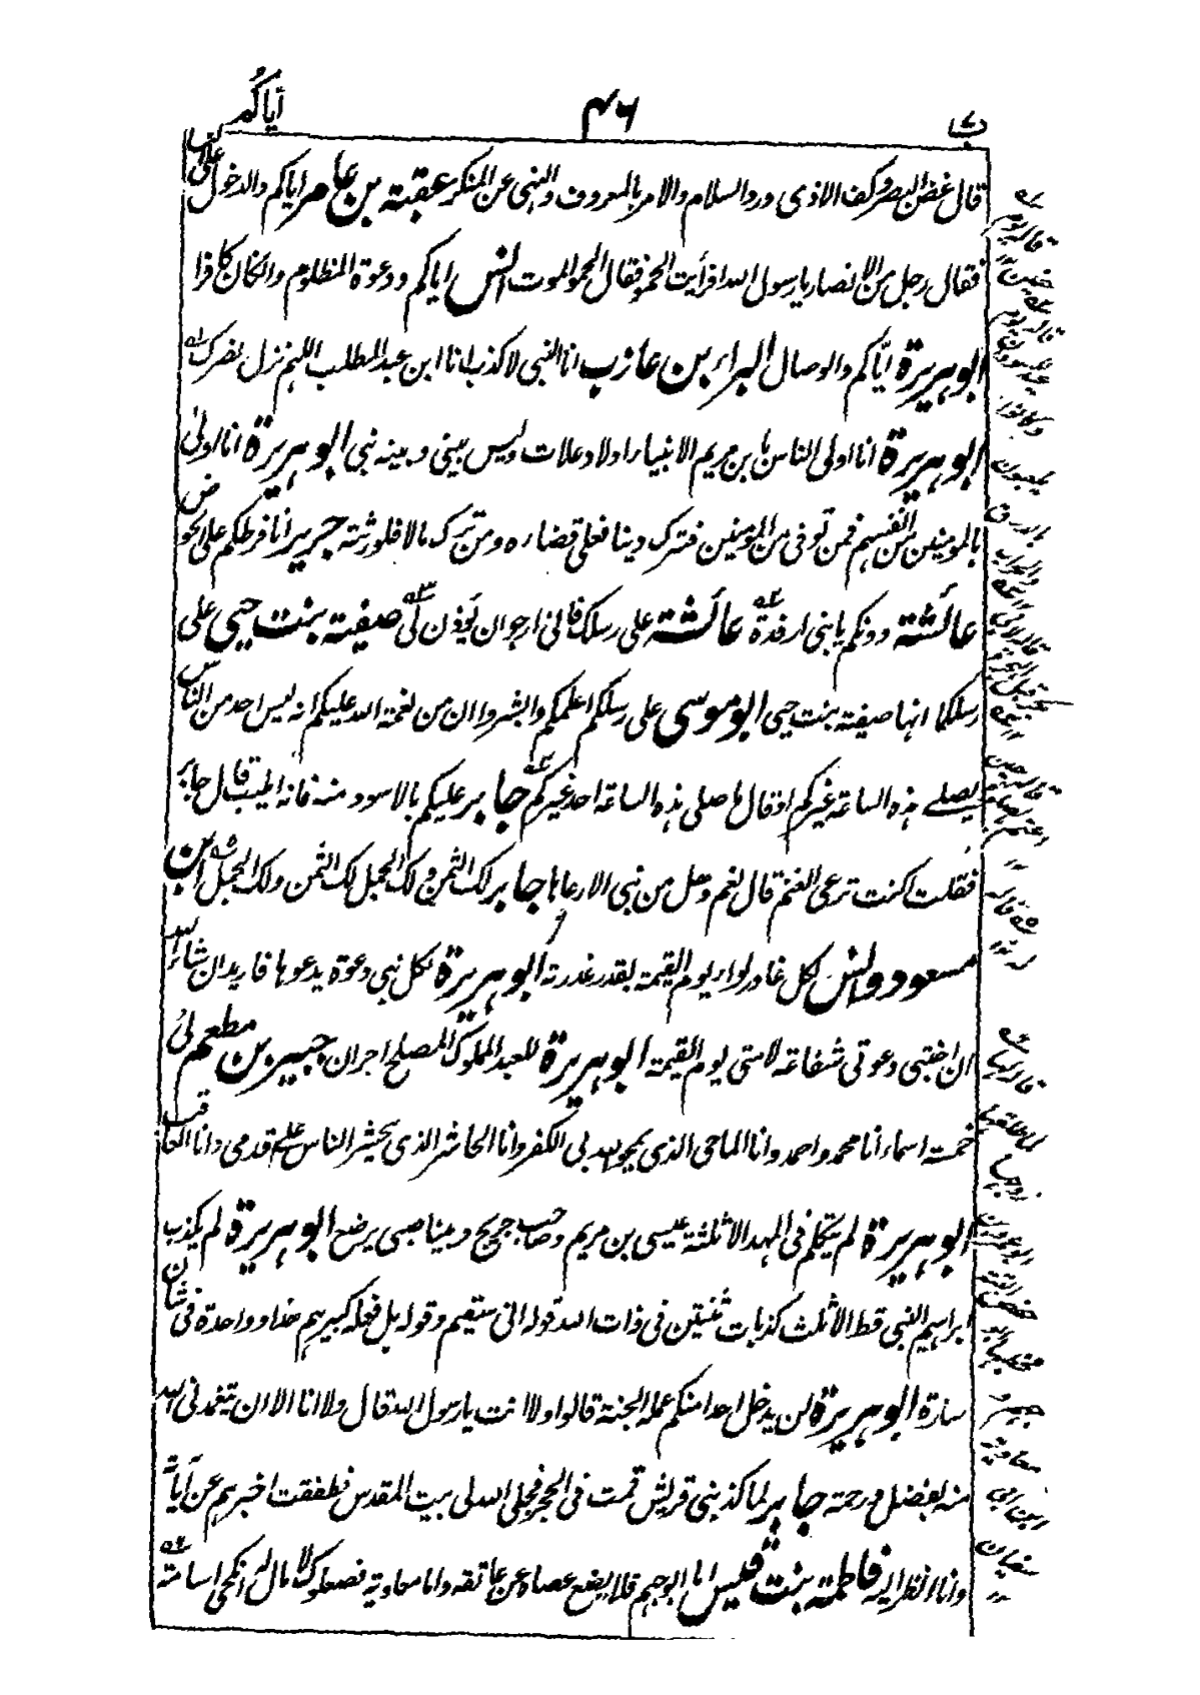 ایاکم
۴۶
قال غض البصر وکف الاذی ورد السلام والامر بالمعروف والنہی عن المنکر عقبۃ بن عامر ایاکم والدخول علی
فقال رجل من الانصار یارسول اللہ افرأیت الحمو فقال الحمو الموت انس ایاکم ودعوۃ المظلوم وان کان کافرا
ابوہریرۃ ایّاکم والوصال البراء بن عازب انا النبی لا کذب انا ابن عبد المطلب اللہم نزل نصرک
ابوہریرۃ انا اولی الناس بابن مریم الانبیاء اولاد علات ولیس بینی وبینہ نبی ابوہریرۃ انا اولیٰ
بالمومنین من انفسہم فمن توفی من المومنین فترک دینا فعلی قضاءہ ومن ترک مالا فلورثتہ جریر انا فرطکم علی الحوض
عائشۃ دونکم یا بنی ارفدۃ عائشۃ علی رسلک فانی ارجو ان یؤذن لی صفیۃ بنت حیی علی
رسلکما انہا صفیۃ بنت حیی ابوموسی علی رسلکم اعلمکم وابشروا ان من نعمۃ اللہ علیکم انہ لیس احد من الناس
یصلے ہذہ الساعۃ غیرکم او قال ما صلی ہذہ الساعۃ احد غیرکم جابر علیکم بالاسود منہ فانہ اطیب قال جابر
فقلت اکنت ترعی الغنم قال نعم وہل من نبی الا رعاہا جابر لک الثمن ولک الجمل لک الثمن ولک الجمل ابن
مسعود وانس لکل غادر لواء یوم القیمۃ بقدر غدرتہ ابوہریرۃ لکل نبی دعوۃ یدعوہا فارید ان شاء اللہ
ان اختبی دعوتی شفاعۃ لامتی یوم القیمۃ ابوہریرۃ للعبد المملوک المصلح اجران جبیر بن مطعم لی
خمسۃ اسماء انا محمد واحمد وانا الماحی الذی یمحو اللہ بی الکفر وانا الحاشر الذی یحشر الناس علے قدمی وانا العاقب
ابوہریرۃ لم یتکلم فی المہد الا ثلثۃ عیسی بن مریم وصاحب جریج وبینا صبی یرضع ابوہریرۃ لم یکذب
ابراہیم النبی قط الا ثلث کذبات ثنتین فی ذات اللہ قولہ انی سقیم وقولہ بل فعلہ کبیرہم ہذا وواحدۃ فی شان
سارۃ ابوہریرۃ لن یدخل احدا منکم عملہ الجنۃ قالوا ولا انت یارسول اللہ قال ولا انا الا ان یتغمدنی اللہ
منہ بفضل ورحمۃ جابر لما کذبنی قریش قمت فی الحجر فجلی اللہ لی بیت المقدس فطفقت اخبرہم عن آیاتہ
وانا انظر الیہ فاطمۃ بنت قیس اما ابوجہم فلا یضع عصاہ عن عاتقہ واما معاویۃ فصعلوک لا مال لہ انکحی اسامۃ